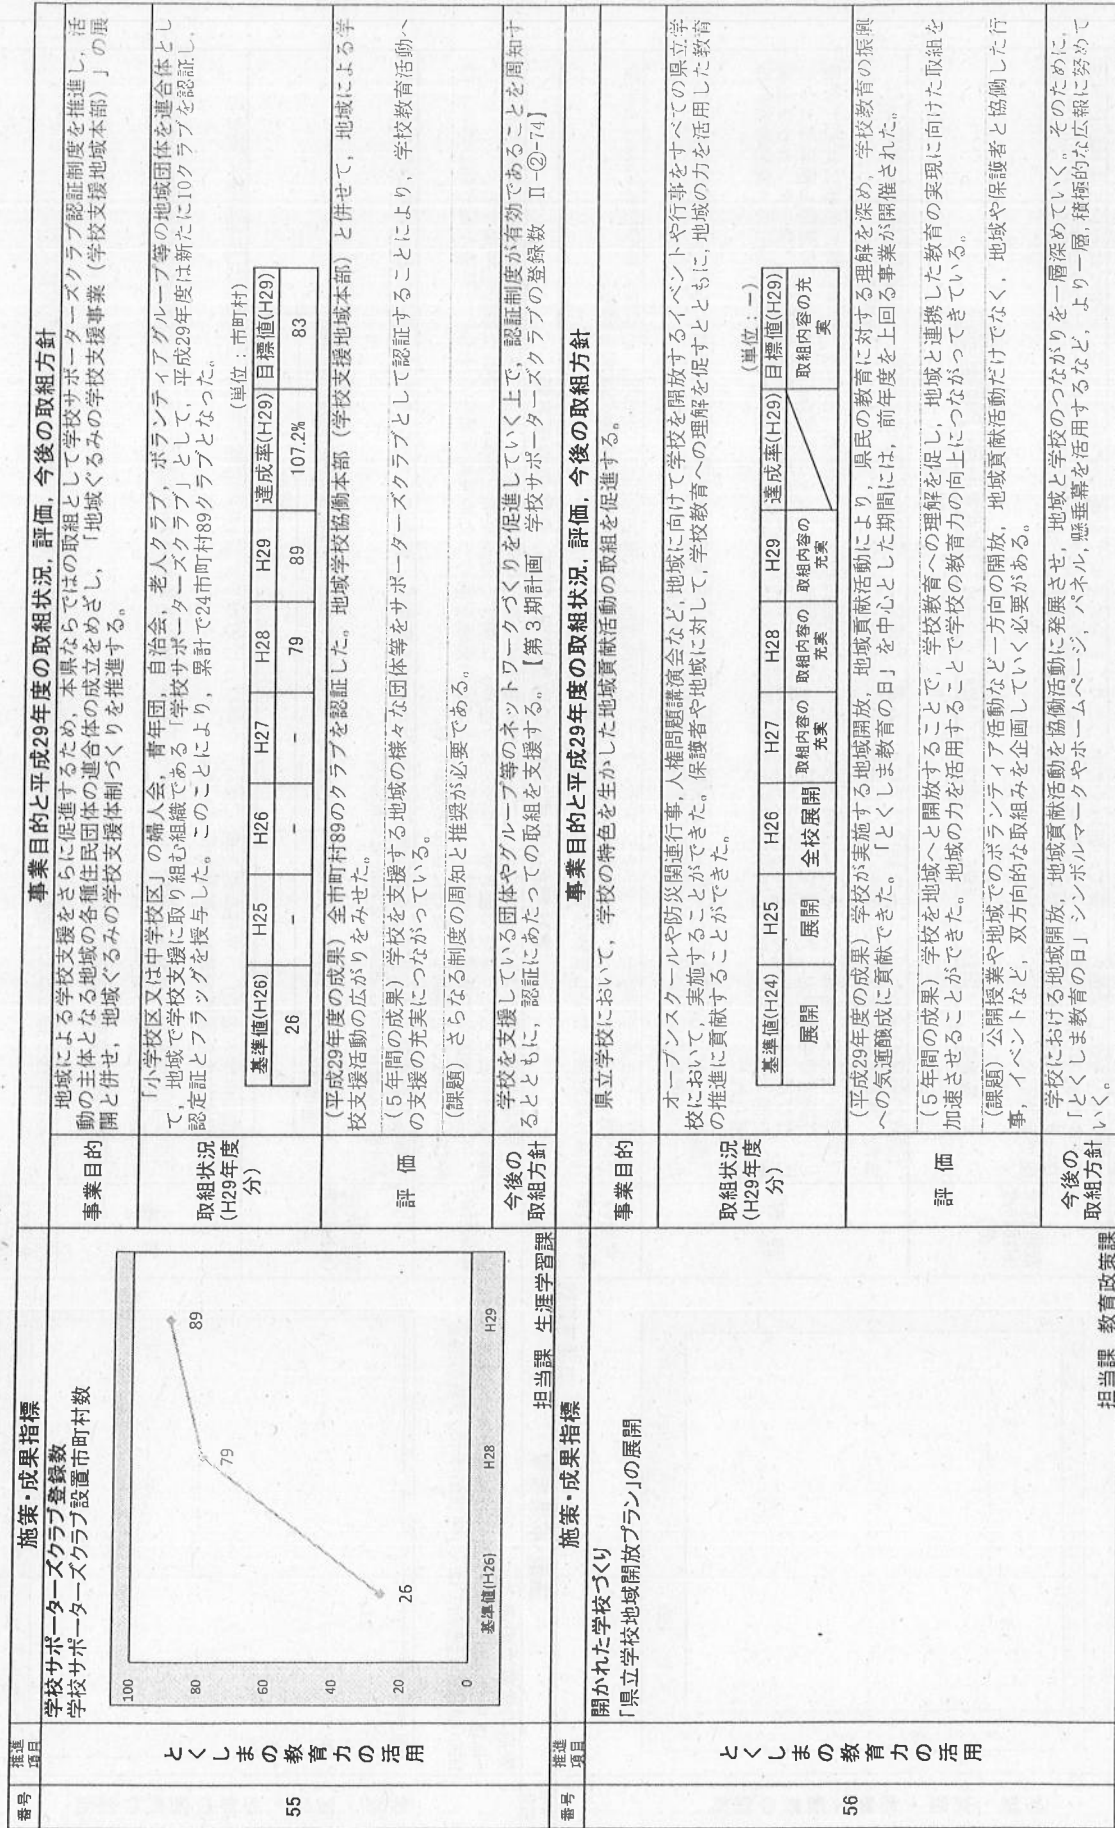 番号
推進項目
施策・成果指標
事業目的と平成29年度の取組状況,評価,今後の取組方針
55
とくしまの教育力の活用
学校サポーターズクラブ登録数
学校サポーターズクラブ設置市町村数
100
80
60
40
20
0
26
79
89
基準値(H26)
H28
H29
担当課 生涯学習課
事業目的
地域による学校支援をさらに促進するため,本県ならではの取組として学校サポーターズクラブ認証制度を推進し,活
動の主体となる地域の各種住民団体の連合体の成立をめざし,「地域ぐるみの学校支援事業(学校支援地域本部)」の展
開と併せ,地域ぐるみの学校支援体制づくりを推進する。
取組状況
(H29年度
分)
「小学校区又は中学校区」の婦人会,青年団,自治会,老人クラブ,ボランティアグループ等の地域団体を連合体とし
て,地域で学校支援に取り組む組織である「学校サポーターズクラブ」として,平成29年度は新たに10クラブを認証し,
認定証とフラッグを授与した。このことにより,累計で24市町村89クラブとなった。
(単位:市町村)
基準値(H26) H25 H26 H27 H28 H29 達成率(H29) 目標値(H29)
26 - - - 79 89 107.2% 83
評 価
(平成29年度の成果)全市町村89のクラブを認証した。地域学校協働本部(学校支援地域本部)と併せて,地域による学
校支援活動の広がりをみせた。
(5年間の成果)学校を支援する地域の様々な団体等をサポーターズクラブとして認証することにより,学校教育活動へ
の支援の充実につながっている。
(課題)さらなる制度の周知と推奨が必要である。
今後の
取組方針
学校を支援している団体やグループ等のネットワークづくりを促進していく上で,認証制度が有効であることを周知す
るとともに,認証にあたっての取組を支援する。【第3期計画 学校サポーターズクラブの登録数 Ⅱ-②-74】
番号
推進項目
施策・成果指標
事業目的と平成29年度の取組状況,評価,今後の取組方針
56
とくしまの教育力の活用
開かれた学校づくり
「県立学校地域開放プラン」の展開
担当課 教育政策課
事業目的
県立学校において,学校の特色を生かした地域貢献活動の取組を促進する。
取組状況
(H29年度
分)
オープンスクールや防災関連行事,人権問題講演会など,地域に向けて学校を開放するイベントや行事をすべての県立学
校において,実施することができた。保護者や地域に対して,学校教育への理解を促すとともに,地域の力を活用した教育
の推進に貢献することができた。
(単位:-)
基準値(H24) H25 H26 H27 H28 H29 達成率(H29) 目標値(H29)
展開 展開 全校展開 取組内容の充実 取組内容の充実 取組内容の充実 取組内容の充実
評 価
(平成29年度の成果)学校が実施する地域開放,地域貢献活動により,県民の教育に対する理解を深め,学校教育の振興
への気運醸成に貢献できた。「とくしま教育の日」を中心とした期間には,前年度を上回る事業が開催された。
(5年間の成果)学校を地域へと開放することで,学校教育への理解を促し,地域と連携した教育の実現に向けた取組を
加速させることができた。地域の力を活用することで学校の教育力の向上につながってきている。
(課題)公開授業や地域でのボランティア活動など一方向の開放,地域貢献活動だけでなく,地域や保護者と協働した行
事,イベントなど,双方向的な取組みを企画していく必要がある。
今後の
取組方針
学校における地域開放,地域貢献活動を協働活動に発展させ,地域と学校のつながりを一層深めていく。そのために,
「とくしま教育の日」シンボルマークやホームページ,パネル,懸垂幕を活用するなど,より一層,積極的な広報に努めて
いく。